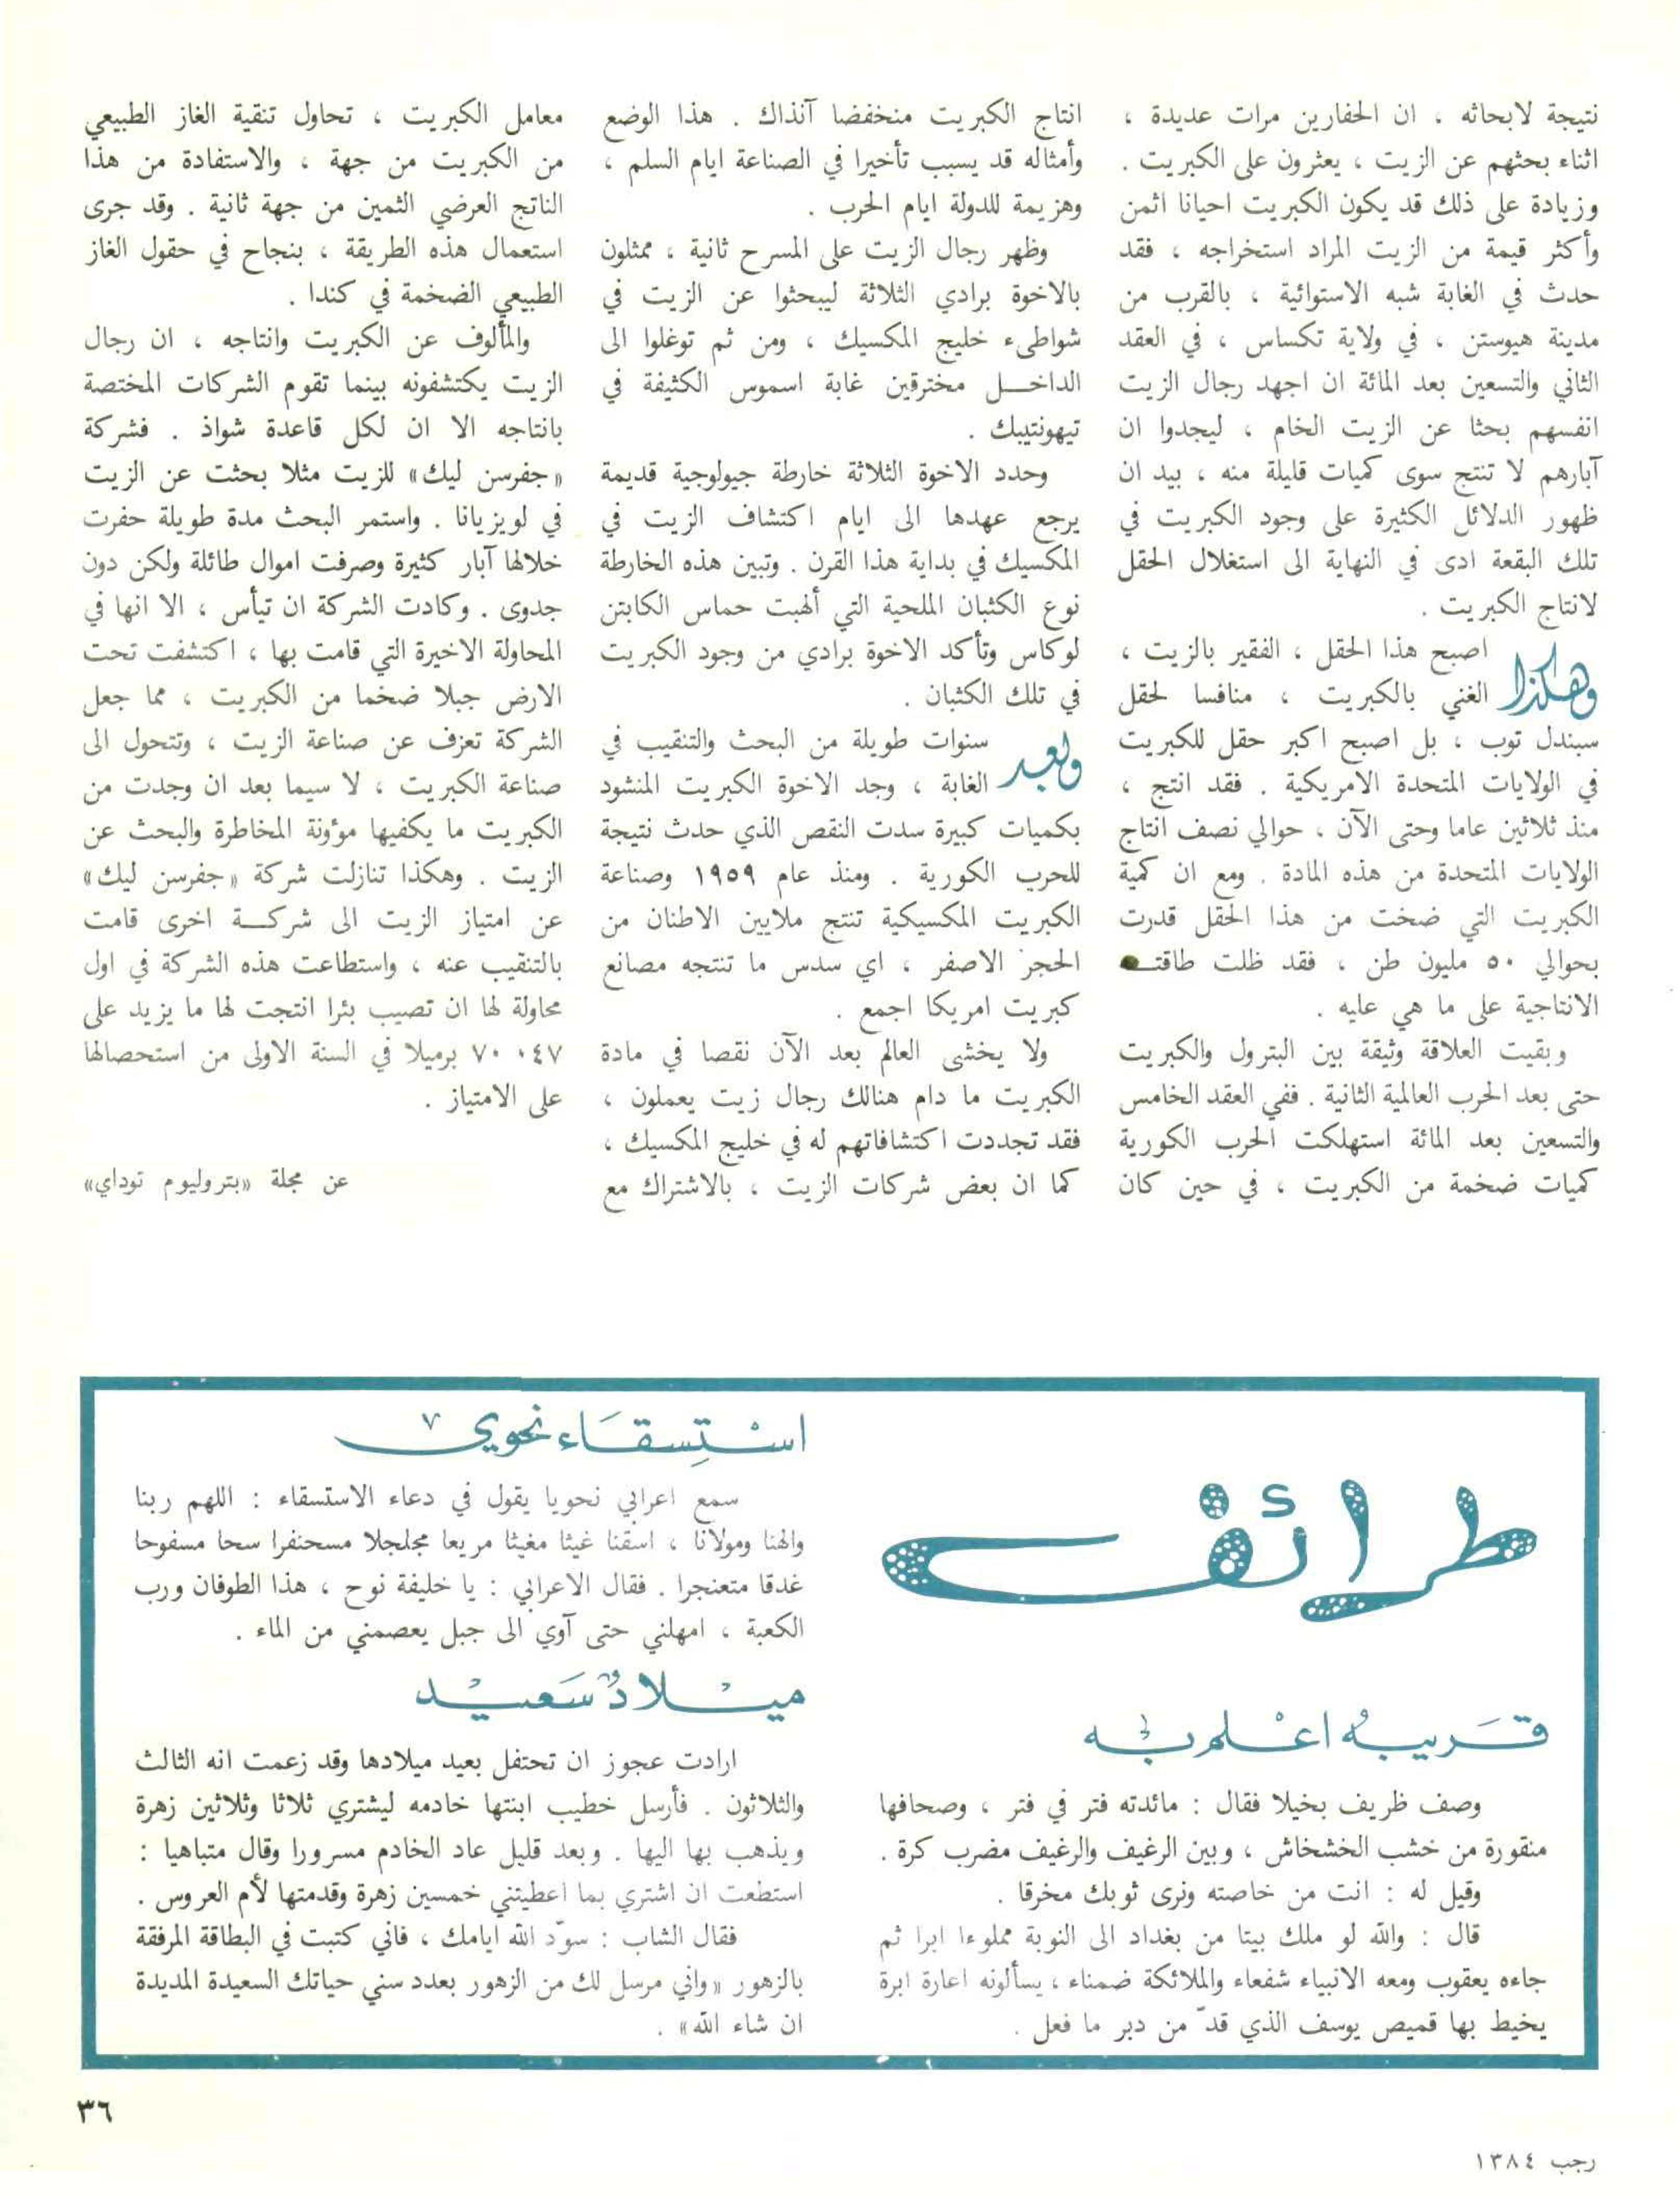 نتيجة لابحاثه ، ان الحفارين مرات عديدة ،
اثناء بحثهم عن الزيت ، يعثرون على الكبريت .
وزيادة على ذلك قد يكون الكبريت احيانا اثمن
وأكثر قيمة من الزيت المراد استخراجه ، فقد
حدث في الغابة شبه الاستوائية ، بالقرب من
مدينة هيوستن ، في ولاية تكساس ، في العقد
الثاني والتسعين بعد المائة ان اجهد رجال الزيت
انفسهم بحثا عن الزيت الخام ، ليجدوا ان
آبارهم لا تنتج سوى كميات قليلة منه ، بيد ان
ظهور الدلائل الكثيرة على وجود الكبريت في
تلك البقعة ادى في النهاية الى استغلال الحقل
لانتاج الكبريت .
وهكذا اصبح هذا الحقل ، الفقير بالزيت ،
الغني بالكبريت ، منافسا لحقل
سبندل توب ، بل اصبح اكبر حقل للكبريت
في الولايات المتحدة الامريكية . فقد انتج ،
منذ ثلاثين عاما وحتى الآن ، حوالي نصف انتاج
الولايات المتحدة من هذه المادة . ومع ان كمية
الكبريت التي ضخت من هذا الحقل قدرت
بحوالي ٥٠ مليون طن ، فقد ظلت طاقتـه
الانتاجية على ما هي عليه .
وبقيت العلاقة وثيقة بين البترول والكبريت
حتى بعد الحرب العالمية الثانية . ففي العقد الخامس
والتسعين بعد المائة استهلكت الحرب الكورية
كميات ضخمة من الكبريت ، في حين كان
انتاج الكبريت منخفضا آنذاك . هذا الوضع
وأمثاله قد يسبب تأخيرا في الصناعة ايام السلم ،
وهزيمة للدولة ايام الحرب .
وظهر رجال الزيت على المسرح ثانية ، ممثلون
بالاخوة برادي الثلاثة ليبحثوا عن الزيت في
شواطىء خليج المكسيك ، ومن ثم توغلوا الى
الداخــل مخترقين غابة اسموس الكثيفة في
تيهونتيبك .
وحدد الاخوة الثلاثة خارطة جيولوجية قديمة
يرجع عهدها الى ايام اكتشاف الزيت في
المكسيك في بداية هذا القرن . وتبين هذه الخارطة
نوع الكثبان الملحية التي ألهبت حماس الكابتن
لوكاس وتأكد الاخوة برادي من وجود الكبريت
في تلك الكثبان .
وبعد سنوات طويلة من البحث والتنقيب في
الغابة ، وجد الاخوة الكبريت المنشود
بكميات كبيرة سدت النقص الذي حدث نتيجة
للحرب الكورية . ومنذ عام ١٩٥٩ وصناعة
الكبريت المكسيكية تنتج ملايين الاطنان من
الحجر الاصفر ، اي سدس ما تنتجه مصانع
كبريت امريكا اجمع .
ولا يخشى العالم بعد الآن نقصا في مادة
الكبريت ما دام هنالك رجال زيت يعملون ،
فقد تجددت اكتشافاتهم له في خليج المكسيك ،
كما ان بعض شركات الزيت ، بالاشتراك مع
معامل الكبريت ، تحاول تنقية الغاز الطبيعي
من الكبريت من جهة ، والاستفادة من هذا
الناتج العرضي الثمين من جهة ثانية . وقد جرى
استعمال هذه الطريقة ، بنجاح في حقول الغاز
الطبيعي الضخمة في كندا .
والمألوف عن الكبريت وانتاجه ، ان رجال
الزيت يكتشفونه بينما تقوم الشركات المختصة
بانتاجه الا ان لكل قاعدة شواذ . فشركة
«جفرسن ليك» للزيت مثلا بحثت عن الزيت
في لويزيانا . واستمر البحث مدة طويلة حفرت
خلالها آبار كثيرة وصرفت اموال طائلة ولكن دون
جدوى . وكادت الشركة ان تيأس ، الا انها في
المحاولة الاخيرة التي قامت بها ، اكتشفت تحت
الارض جبلا ضخما من الكبريت ، مما جعل
الشركة تعزف عن صناعة الزيت ، وتتحول الى
صناعة الكبريت ، لا سيما بعد ان وجدت من
الكبريت ما يكفيها مؤونة المخاطرة والبحث عن
الزيت . وهكذا تنازلت شركة «جفرسن ليك»
عن امتياز الزيت الى شركــة اخرى قامت
بالتنقيب عنه ، واستطاعت هذه الشركة في اول
محاولة لها ان تصيب بئرا انتجت لها ما يزيد على
٧٠٠٤٧ برميلا في السنة الاولى من استحصالها
على الامتياز .
عن مجلة «بتروليوم توداي»
طرائف
قريبه اعلم به
وصف ظريف بخيلا فقال : مائدته فتر في فتر ، وصحافها
منقورة من خشب الخشخاش ، وبين الرغيف والرغيف مضرب كرة .
وقيل له : انت من خاصته ونرى ثوبك مخرقا .
قال : والله لو ملك بيتا من بغداد الى النوبة مملوءا ابرا ثم
جاءه يعقوب ومعه الانبياء شفعاء والملائكة ضمناء ، يسألونه اعارة ابرة
يخيط بها قميص يوسف الذي قدّ من دبر ما فعل .
استسقاء نحوي
سمع اعرابي نحويا يقول في دعاء الاستسقاء : اللهم ربنا
والهنا ومولانا ، اسقنا غيثا مغيثا مريعا مجلجلا مسحنفرا سحا مسفوحا
غدقا متعنجرا . فقال الاعرابي : يا خليفة نوح ، هذا الطوفان ورب
الكعبة ، امهلني حتى آوي الى جبل يعصمني من الماء .
ميلاد سعيد
ارادت عجوز ان تحتفل بعيد ميلادها وقد زعمت انه الثالث
والثلاثون . فأرسل خطيب ابنتها خادمه ليشتري ثلاثا وثلاثين زهرة
ويذهب بها اليها . وبعد قليل عاد الخادم مسرورا وقال متباهيا :
استطعت ان اشتري بما اعطيتني خمسين زهرة وقدمتها لأم العروس .
فقال الشاب : سوّد الله ايامك ، فاني كتبت في البطاقة المرفقة
بالزهور «واني مرسل لك من الزهور بعدد سني حياتك السعيدة المديدة
ان شاء الله» .
٣٦
رجب ١٣٨٤